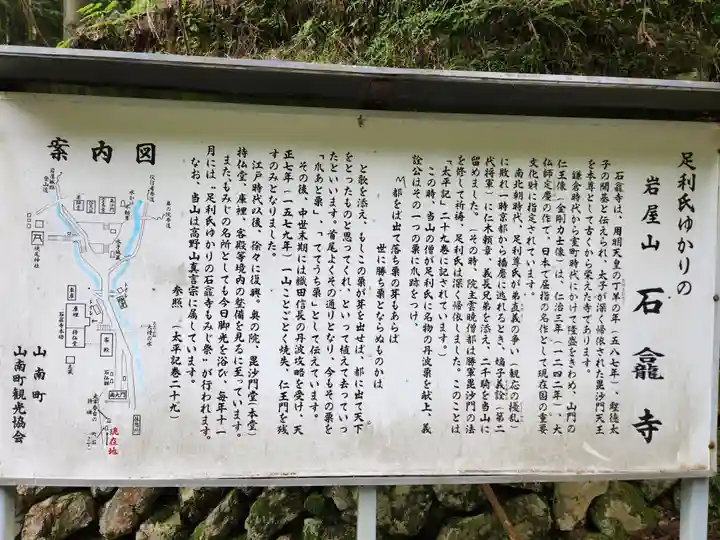 足利氏ゆかりの
岩屋山 石龕寺
石龕寺は、用明天皇の丁羊の年(五八七年)、聖徳太
子の開基と伝えられ、太子が深く帰依された毘沙門天王
を本尊として古くから栄えた寺であります。
鎌倉時代から室町時代にかけて隆盛をきわめ、山門の
仁王像(金剛力士像)は、仁治三年(一二四二年)大
仏師定慶の作で、日本で屈指の名作として現在国の重要
文化財に指定されています。
南北朝時代、足利尊氏が弟直義の争い(観応の擾乱)
に敗れ、一時京都から播磨に逃れるとき、嫡子義詮(第二
代将軍)に仁木頼章、義長兄弟を添え、二千騎を当山に
留めました。(その時、院主雲暁僧都は勝軍毘沙門の法
を修して祈祷、足利氏は深く帰依しました。このことは
「太平記」二十九巻に記されています。)
この時、当山の僧が足利氏に名物の丹波栗を献上、義
詮公はその一つの栗に爪跡をつけ、
都をば出て落ち栗の芽もあらば
世に勝ち栗とならぬものかは
と歌を添え、もしこの栗が芽を出せば、都に出て天下
をとったものと思ってくれ、といって植えて去っていっ
たといいます。首尾よくその通りとなり、今もその栗を
「爪あと栗」、「ててうち栗」として伝えています。
その後、中世末期には織田信長の丹波攻略を受け、天
正七年(一五七九年)一山ことごとく焼失。仁王門を残
すのみとなりました。
江戸時代以後、徐々に復興。奥の院、毘沙門堂(本堂)
持仏堂、庫裡、客殿等境内の整備を見るに至っています。
また、もみじの名所としても今日脚光を浴び、毎年十一
月には〝足利氏ゆかりの石龕寺もみじ祭〟が行われます。
なお、当山は高野山真言宗に属しています。
参照(太平記巻二十九)
山南町
山南町観光協会
案内図
焼尾神社
庫裡
持仏堂
客殿
仁王門
現在地